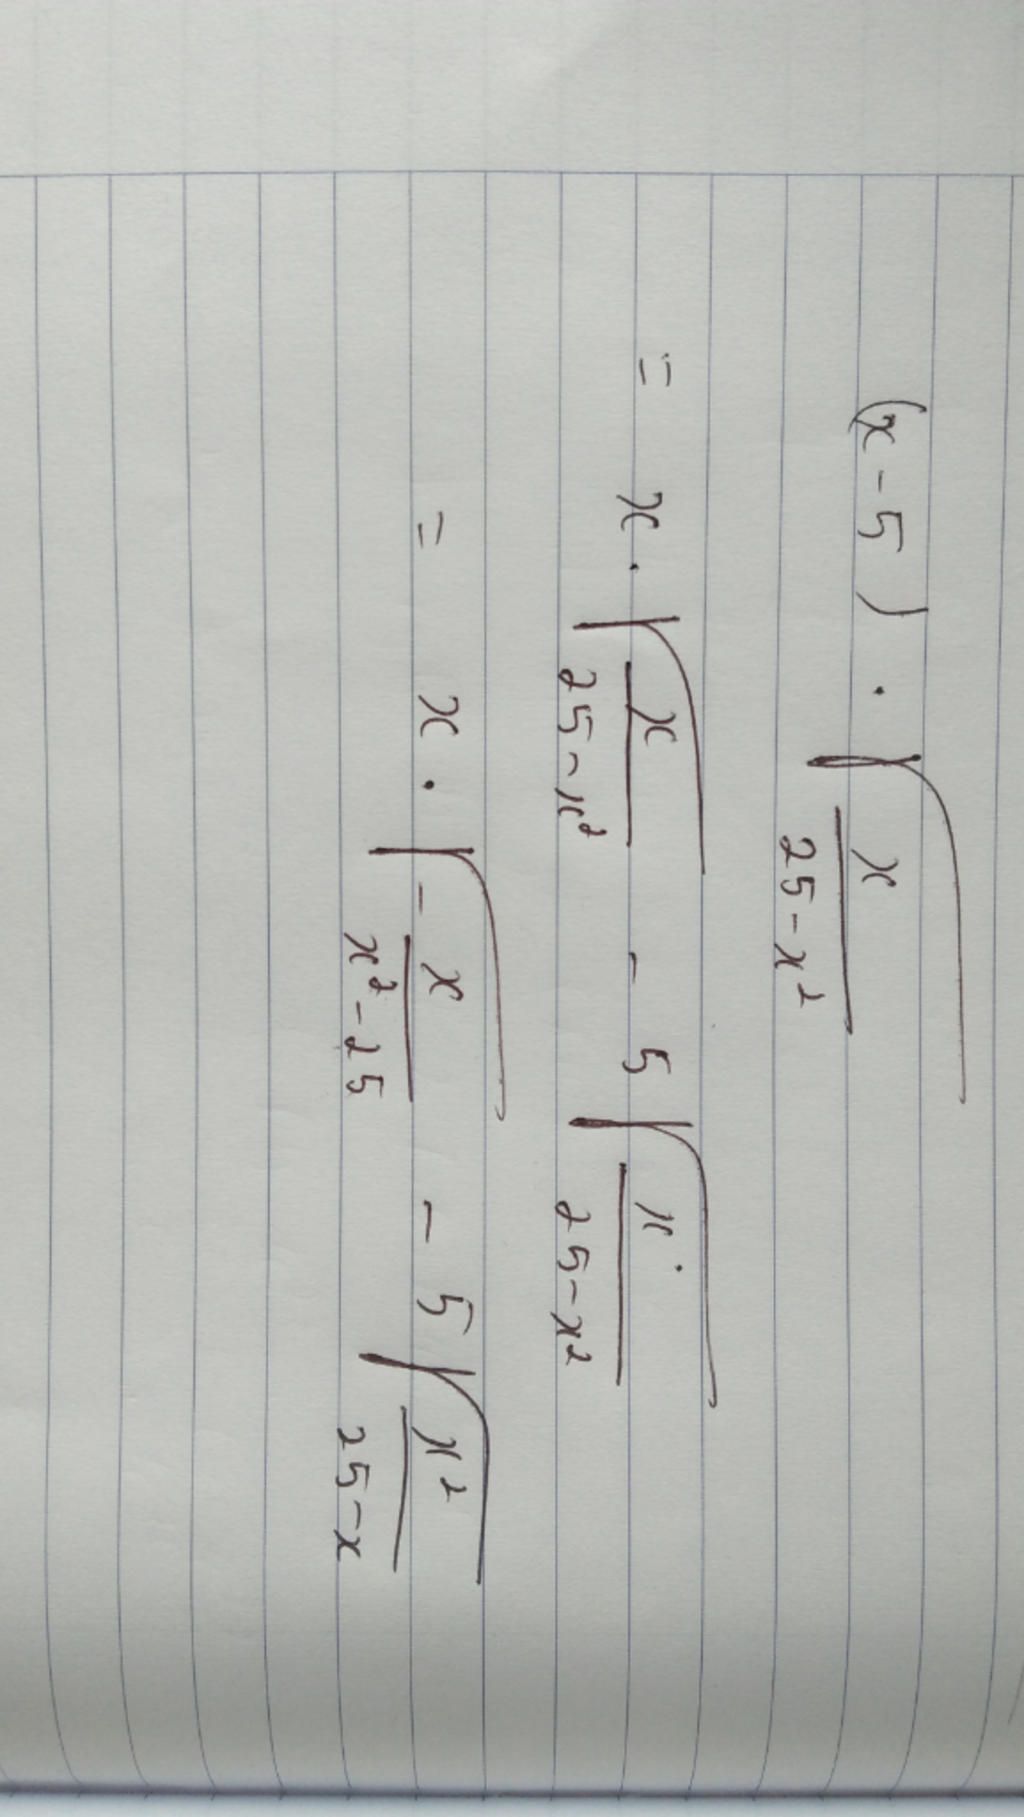 (x - 5) · √(x/(25 - x²))
= x · √(x/(25 - x²)) - 5 √(x/(25 - x²))
= x · √(- x/(x² - 25)) - 5 √(x²/(25 - x))